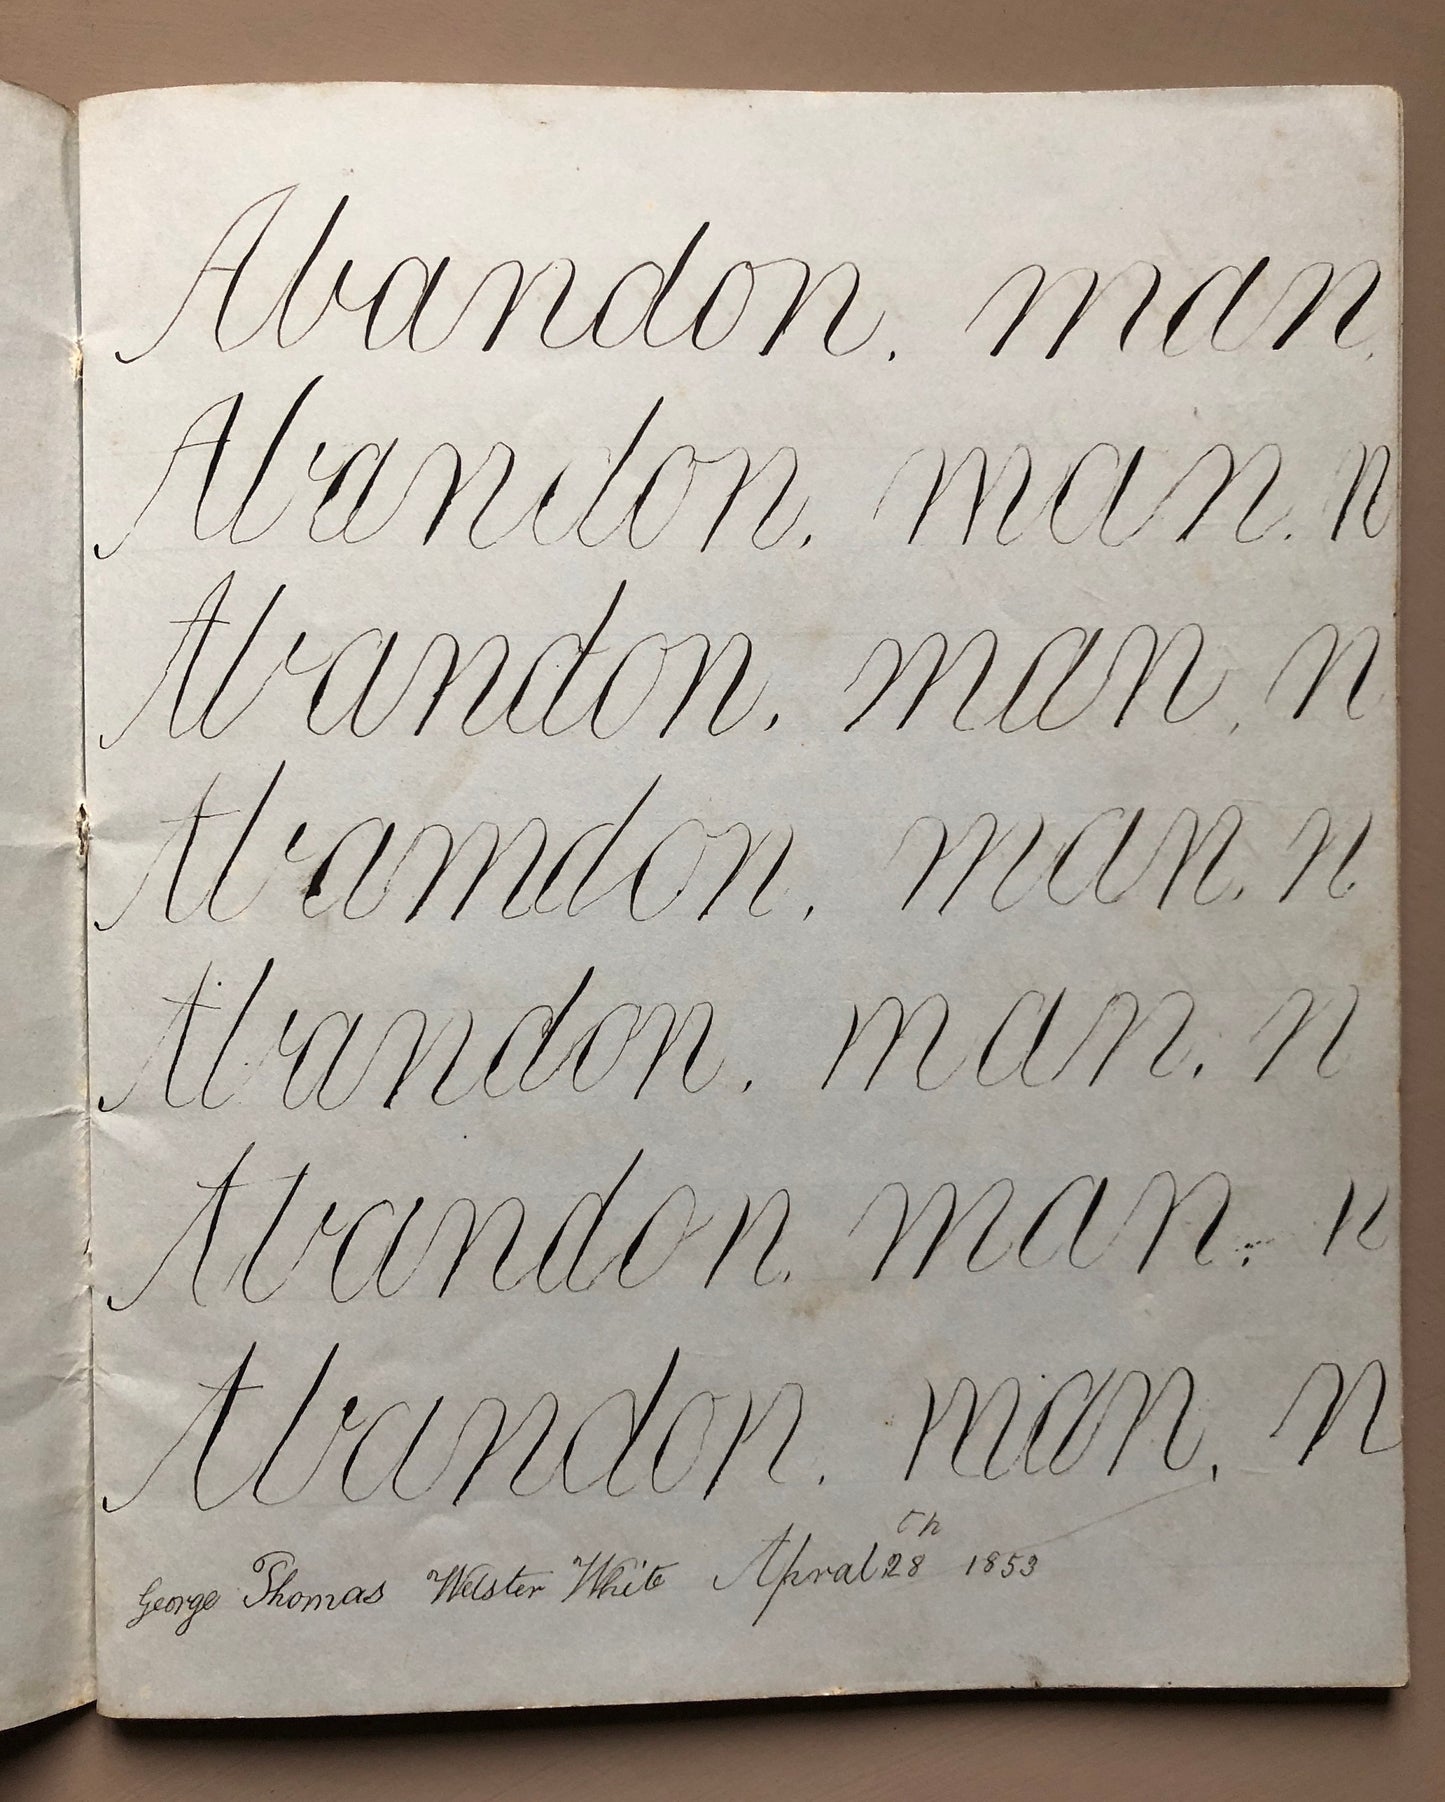 Abandon. man.
Abandon. man. n
Abandon. man. n
Abamdon. man. n
Abandon. man. n
Abandon. man. n
Abandon. man. n
George Thomas Webster White Apral 28th 1853